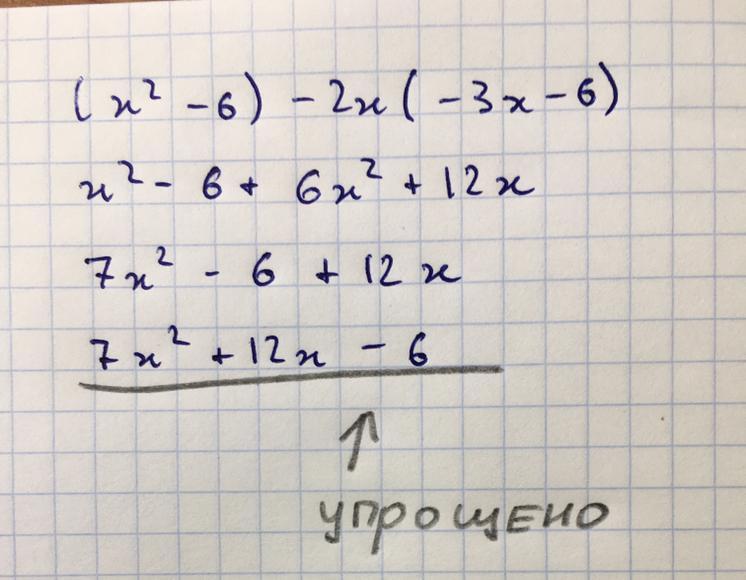 (x² - 6) - 2x(-3x - 6)
x² - 6 + 6x² + 12x
7x² - 6 + 12x
7x² + 12x - 6
↑
упрощено